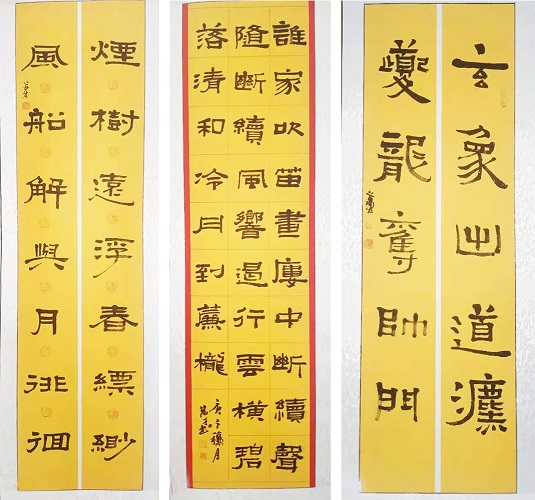 煙樹遠浮春縹緲
風船解與月徘徊
誰家吹笛畫廔中斷續聲
隨斷續風響遏行雲橫碧
落清和冷月到簾櫳
庚子穐月
玄象道
夔龍奪帥門